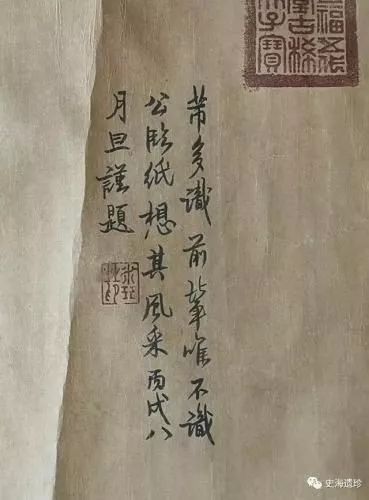 芾多識前輩唯不識
公臨紙想其風采丙戌八
月旦謹題
史海遗珍